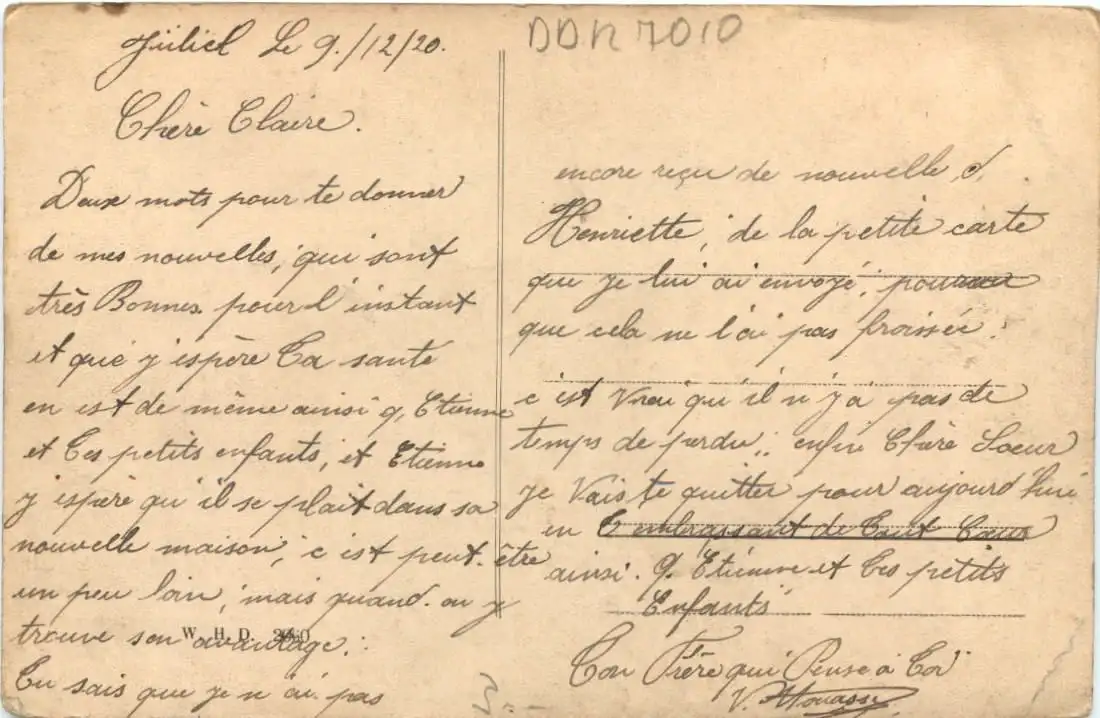 Jüliel Le 9./12/20.
Chère Claire.
Deux mots pour te donner
de mes nouvelles, qui sont
très Bonnes pour l'instant
et que j'espère Ta santé
en est de même ainsi q, Etienne
et Tes petits enfants, et Etienne
j'espère qu'il se plait dans sa
nouvelle maison, c'est peut-être
un peu loin, mais quand on y
trouve son avantage.
W. H. D.
Tu sais que je n'ai pas
DDR 7010
encore reçu de nouvelle, d,
Henriette, de la petite carte
que je lui ai envoyé, pourvu
que cela ne l'ai pas froissée.
c'est Vrai qu'il n'y a pas de
temps de perdu, enfin Chère Soeur
je Vais te quitter pour aujourd'hui
en T'embrassant de Tout Coeur
ainsi. q. Etienne et Tes petits
Enfants
Ton Frère qui Pense à Toi
V.